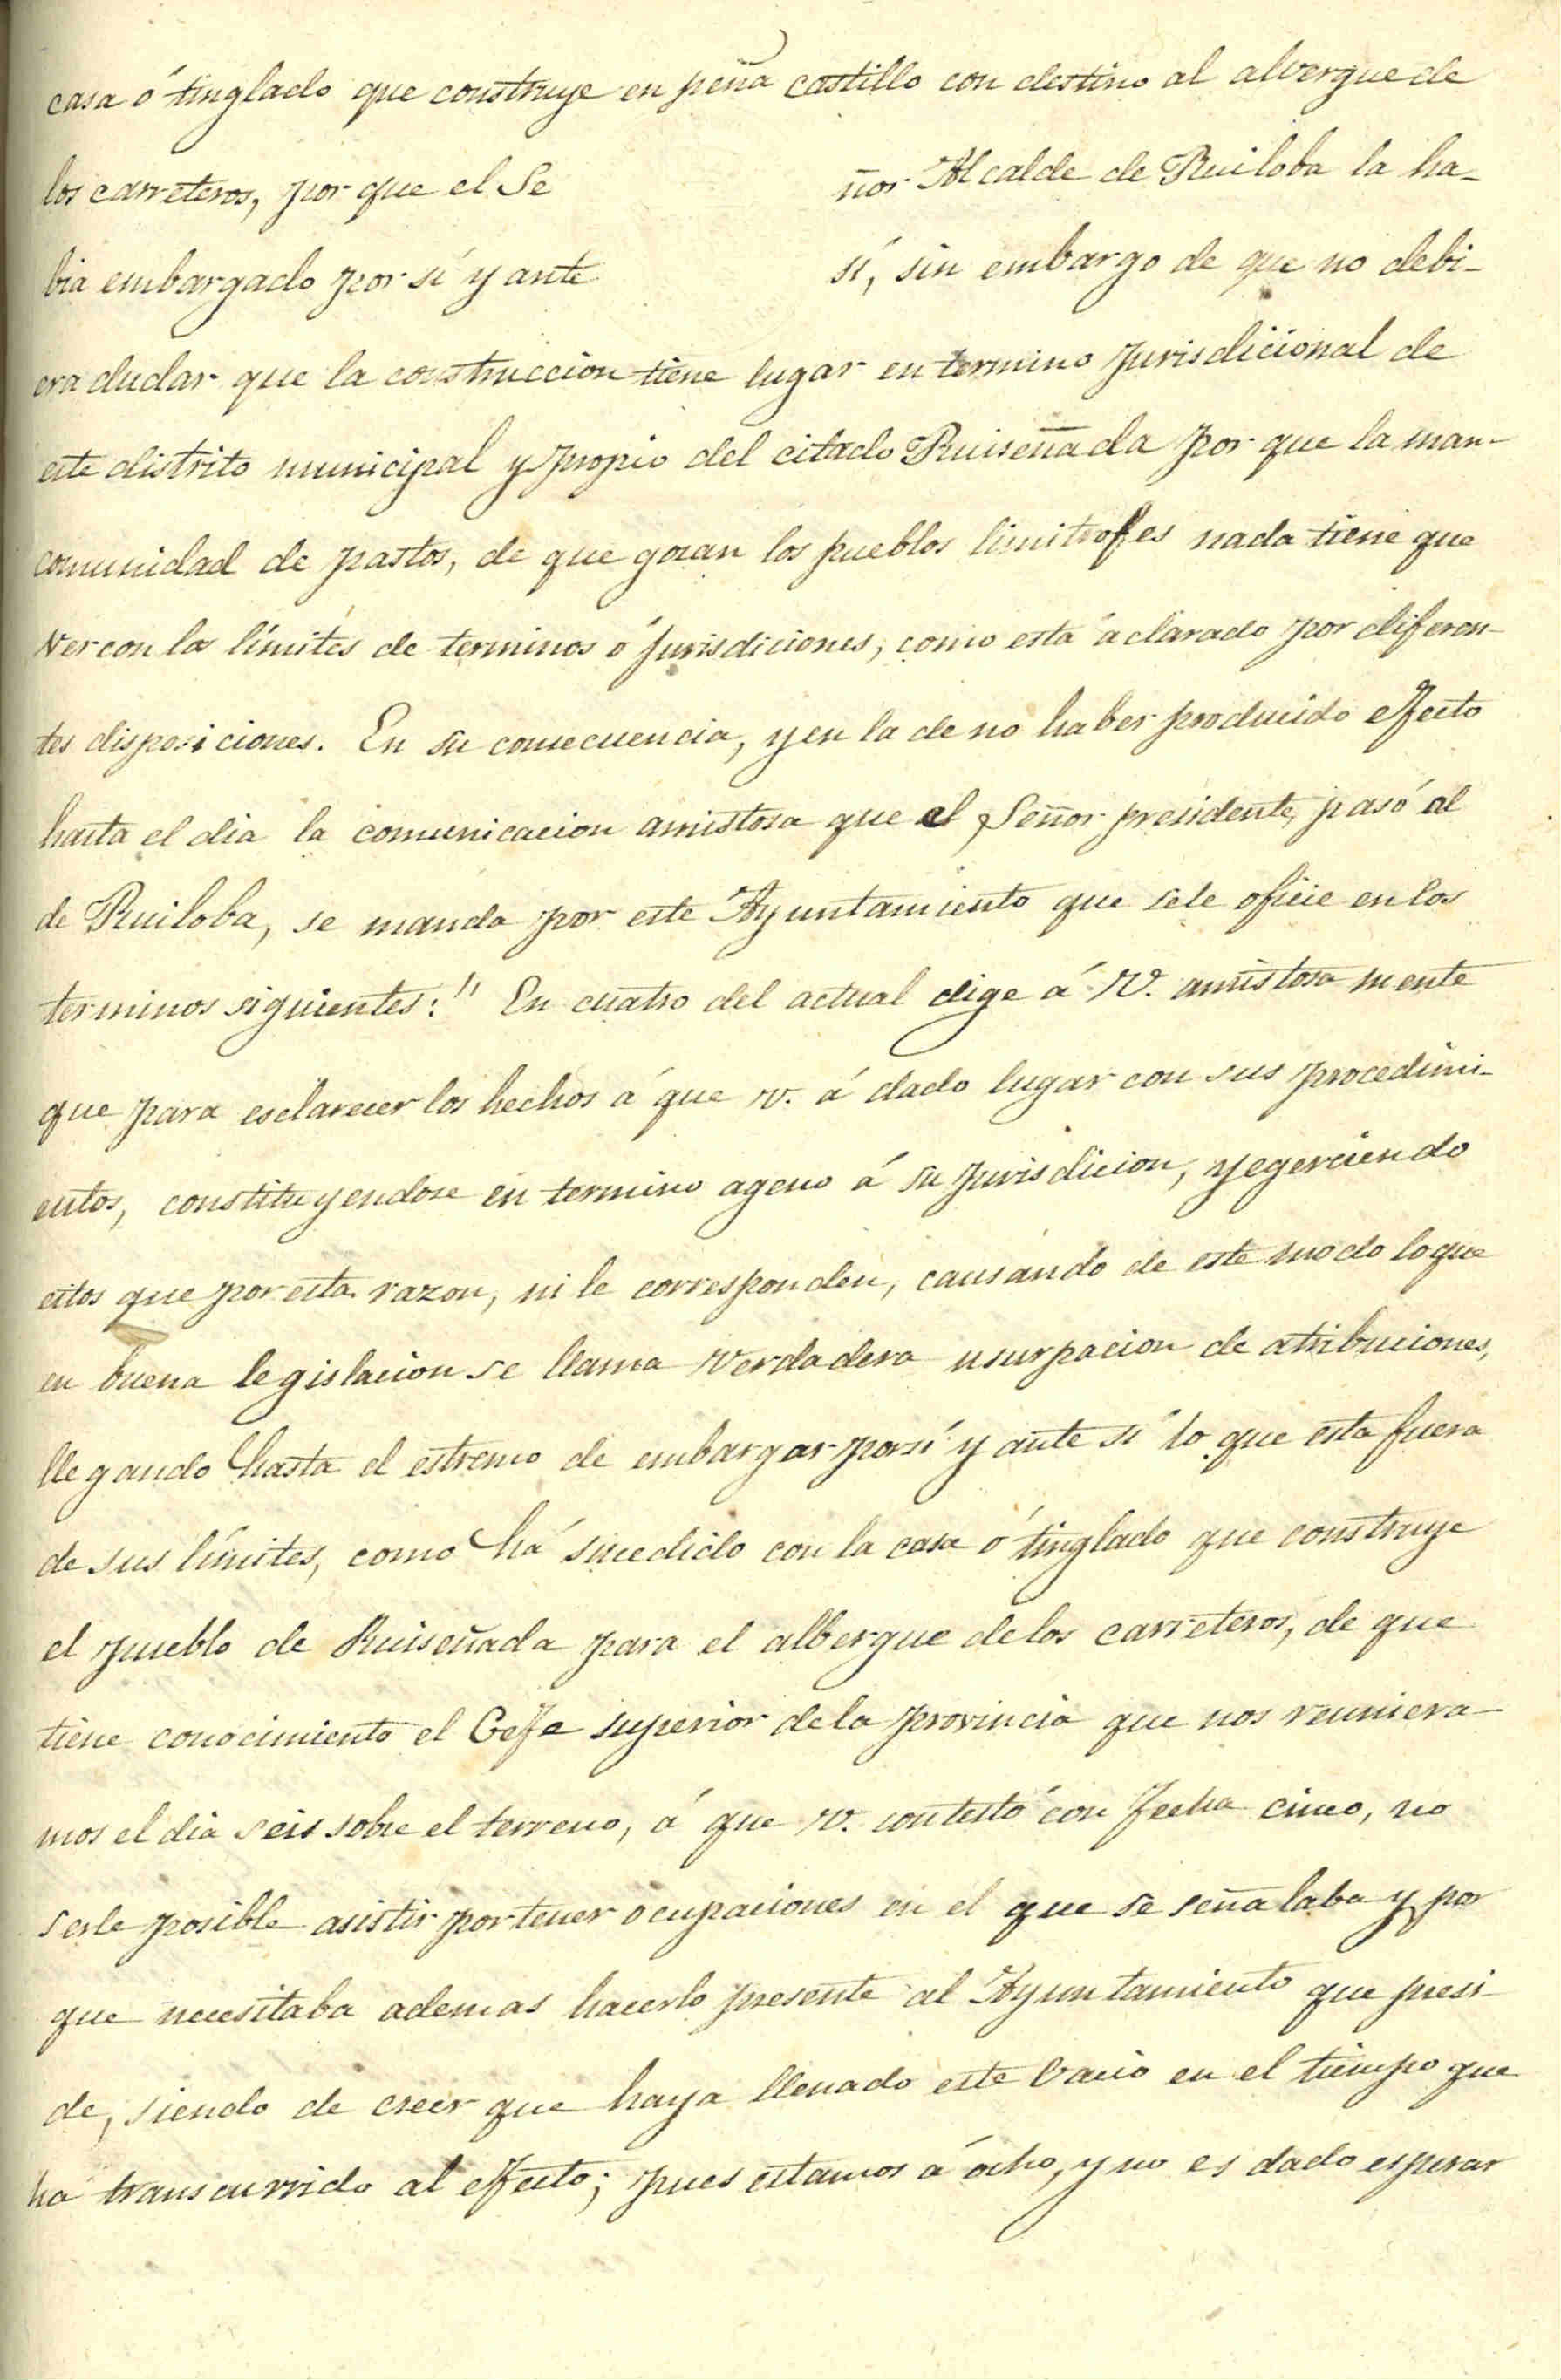 casa ó tinglado que construye en peña castillo con destino al alvergue de
los carreteros, por que el Se ñor Alcalde de Ruiloba la ha-
bia embargado por sí y ante sí, sin embargo de que no debi-
era dudar que la construccion tiene lugar en termino Jurisdicional de
este distrito municipal y propio del citado Ruiseñada por que la man-
comunidad de pastos, de que gozan los pueblos limitrofes nada tiene que
ver con los límites de terminos o Jurisdiciones, como está aclarado por diferen-
tes disposiciones. En su consecuencia, y en la de no haber producido efecto
hasta el dia la comunicacion amistosa que el Señor presidente, pasó al
de Ruiloba, se manda por este Ayuntamiento que se le oficie en los
terminos siguientes: " En cuatro del actual dige á V. amistosa mente
que para esclarecer los hechos á que v. á dado lugar con sus procedimi-
entos, constituyendose en termino ageno á su jurisdicion, y egerciendo
estos que por esta razon, ni le corresponden, causando de este modo lo que
en buena legislacion se llama verdadera usurpacion de atribuciones,
llegando hasta el estremo de embargar por sí y ante sí lo que esta fuera
de sus límites, como há sucedido con la casa ó tinglado que construye
el pueblo de Ruiseñada para el albergue de los carreteros, de que
tiene conocimiento el Gefe superior de la provincia que nos reuniera-
mos el dia seis sobre el terreno, á que v. contestó con fecha cinco, no
serle posible asistir por tener ocupaciones en el que se señalaba y por
que necesitaba ademas hacerlo presente al Ayuntamiento que presi-
de, siendo de creer que haya llenado este vacio en el tiempo que
há transcurrido al efecto; pues estamos á ocho, y no es dado esperar